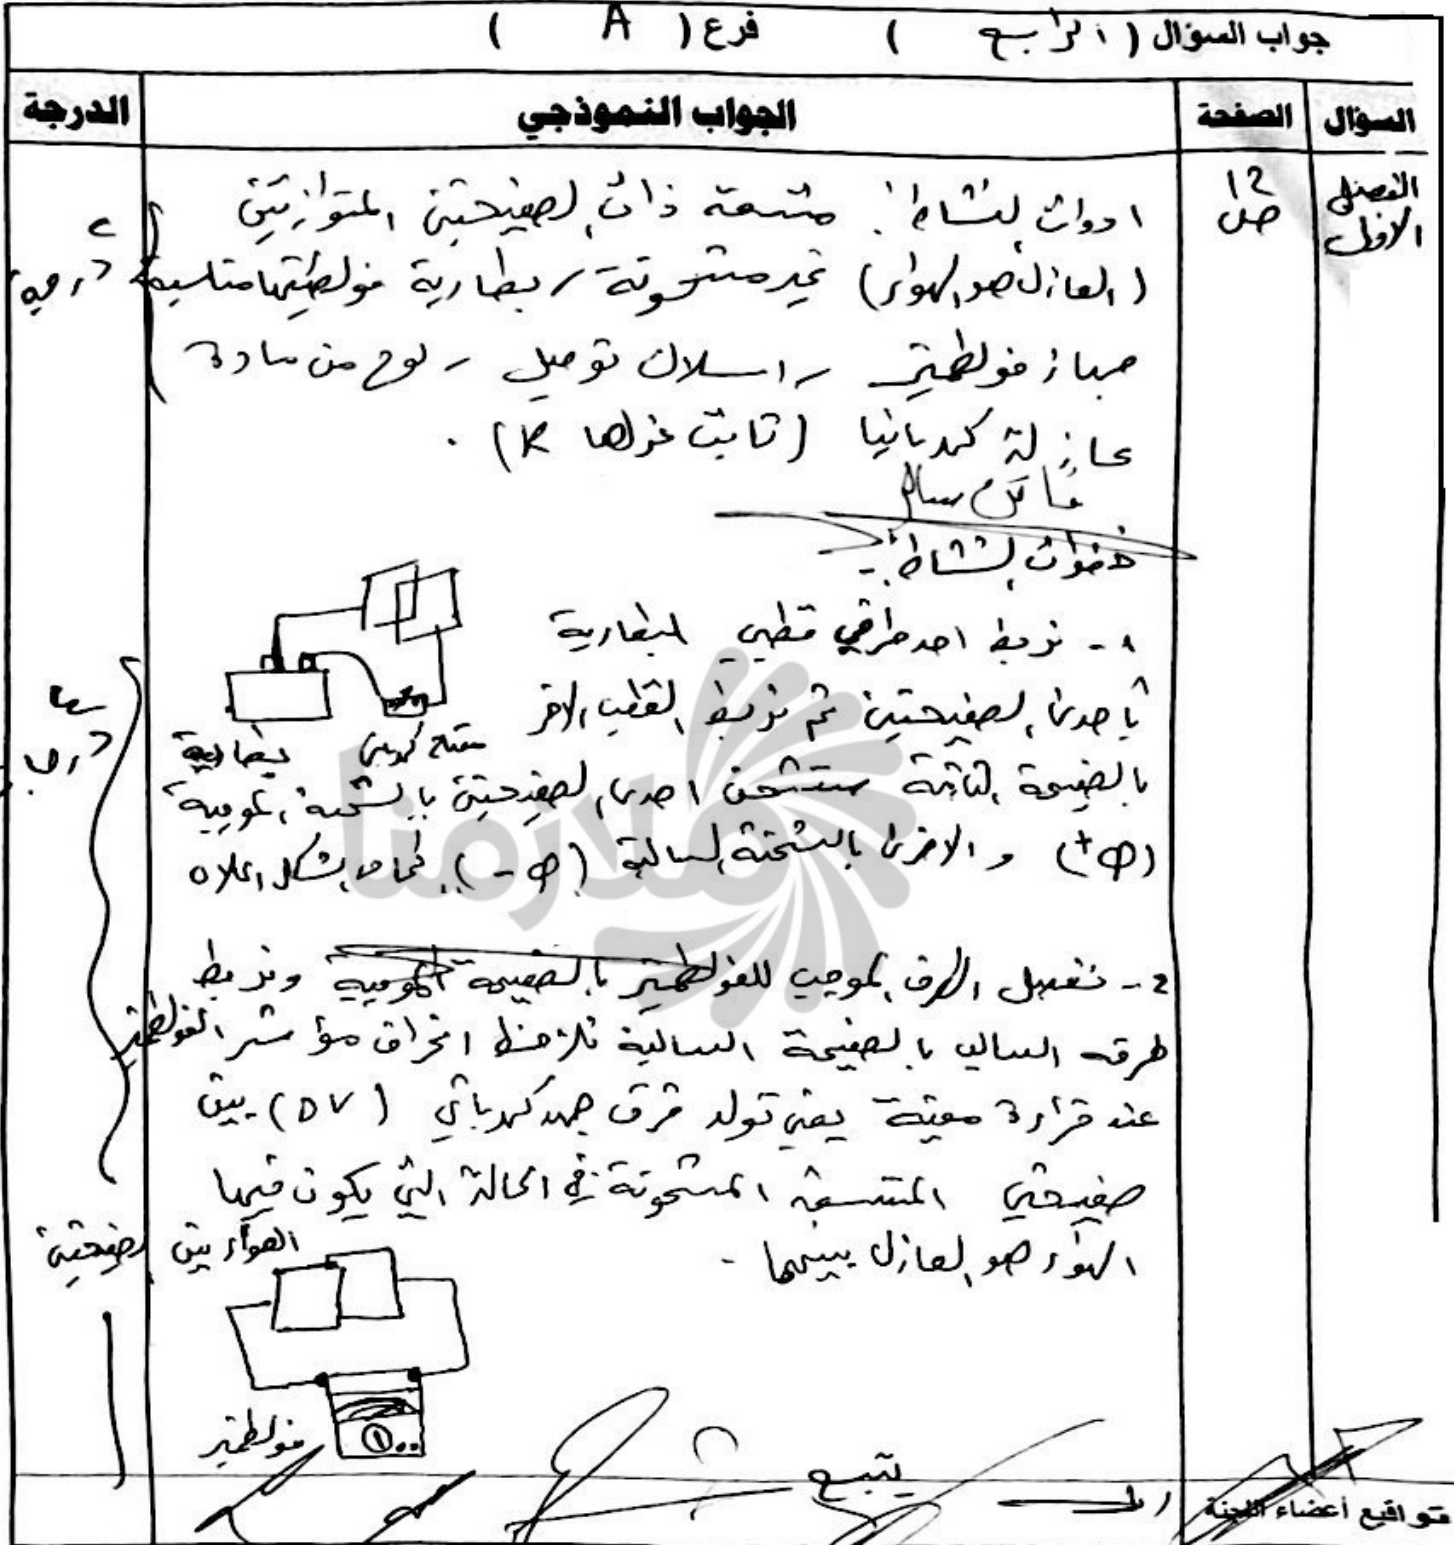 جواب السؤال ( الرابع ) فرع ( A )
السؤال الصفحة الجواب النموذجي الدرجة
الفصل الاول
12 ص
ادوات النشاط : متسعة ذات الصفيحتين المتوازيتين
(العازل هو الهواء) غير مشحونة ، بطارية فولطيتها مناسبة
جهاز فولطميتر ، اسلاك توصيل ، لوح من مادة
عازلة كهربائيا (ثابت عزلها K) .
خطوات النشاط :-
1- نربط احد طرفي قطبي البطارية
بأحدى الصفيحتين ثم نربط القطب الاخر
بالصفيحة الثانية ستشحن احدى الصفيحتين بالشحنة الموجبة
(+Q) و الاخرى بالشحنة السالبة (-Q) كما في الشكل اعلاه
مفتاح كهربائي بطارية
2- نصل الطرف الموجب للفولطميتر بالصفيحة الموجبة ونربط
طرفه السالب بالصفيحة السالبة نلاحظ انحراف مؤشر الفولطميتر
عند قراءة معينة يعني تولد فرق جهد كهربائي (ΔV) بين
صفيحتي المتسعة المشحونة في الحالة التي يكون فيها
الهواء هو العازل بينهما .
الهواء بين الصفيحتين
فولطميتر
يتبع
تواقيع أعضاء اللجنة
ملازمنا